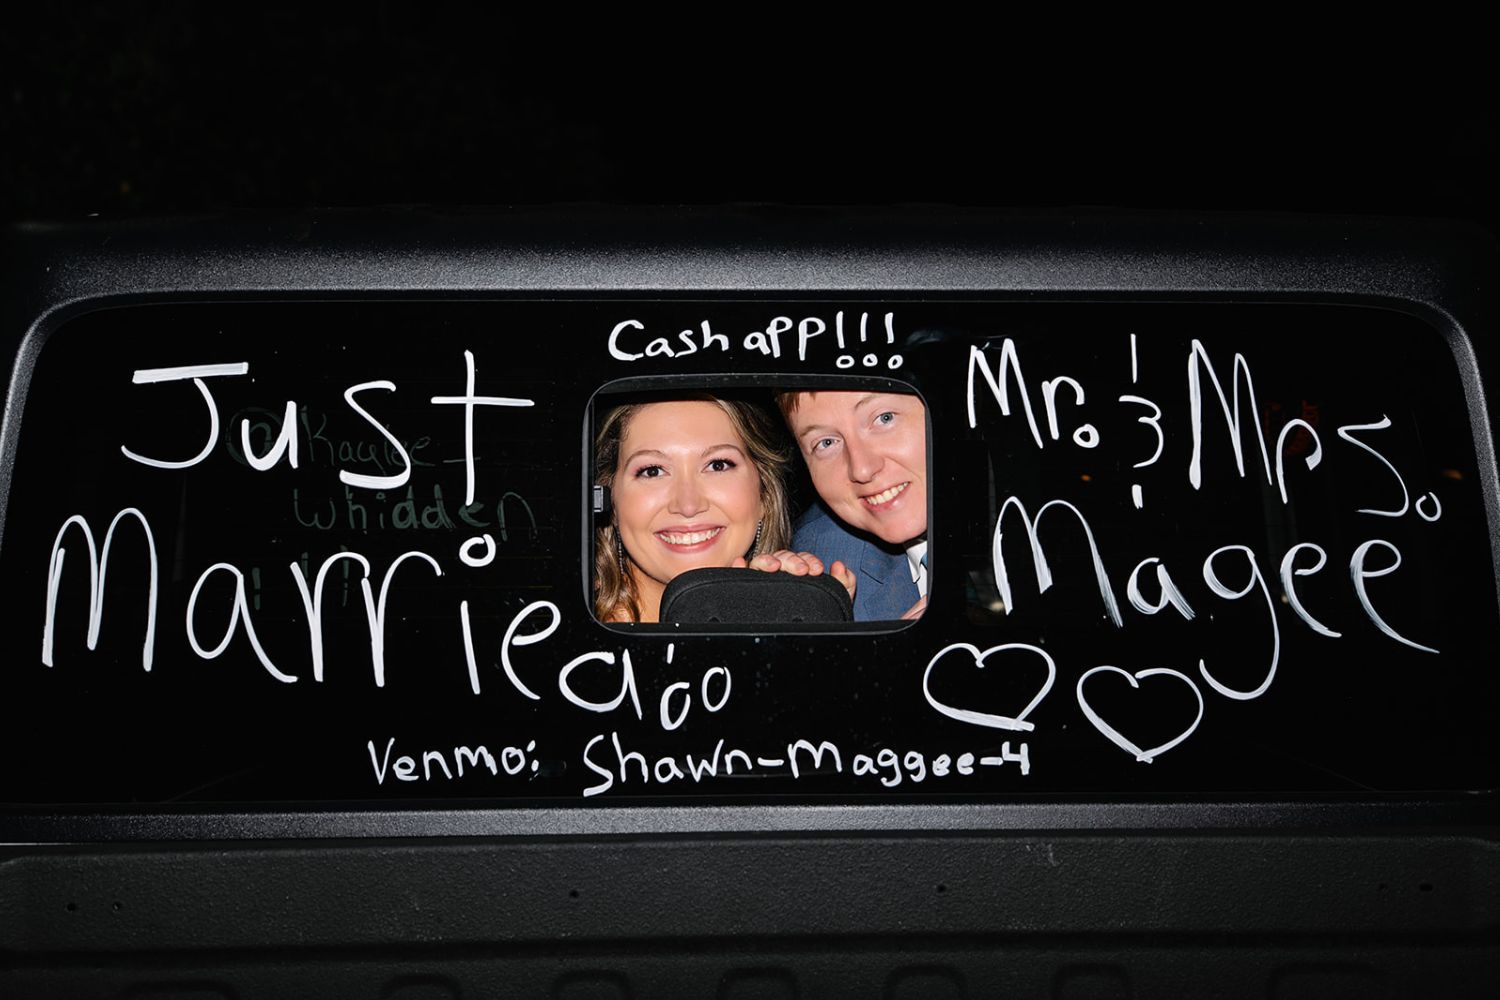 Cash app!!!
Just
Married!!
Mr. & Mrs.
Magee
Venmo: Shawn-Maggee-4
@Kaylee-
Whidden
!!!